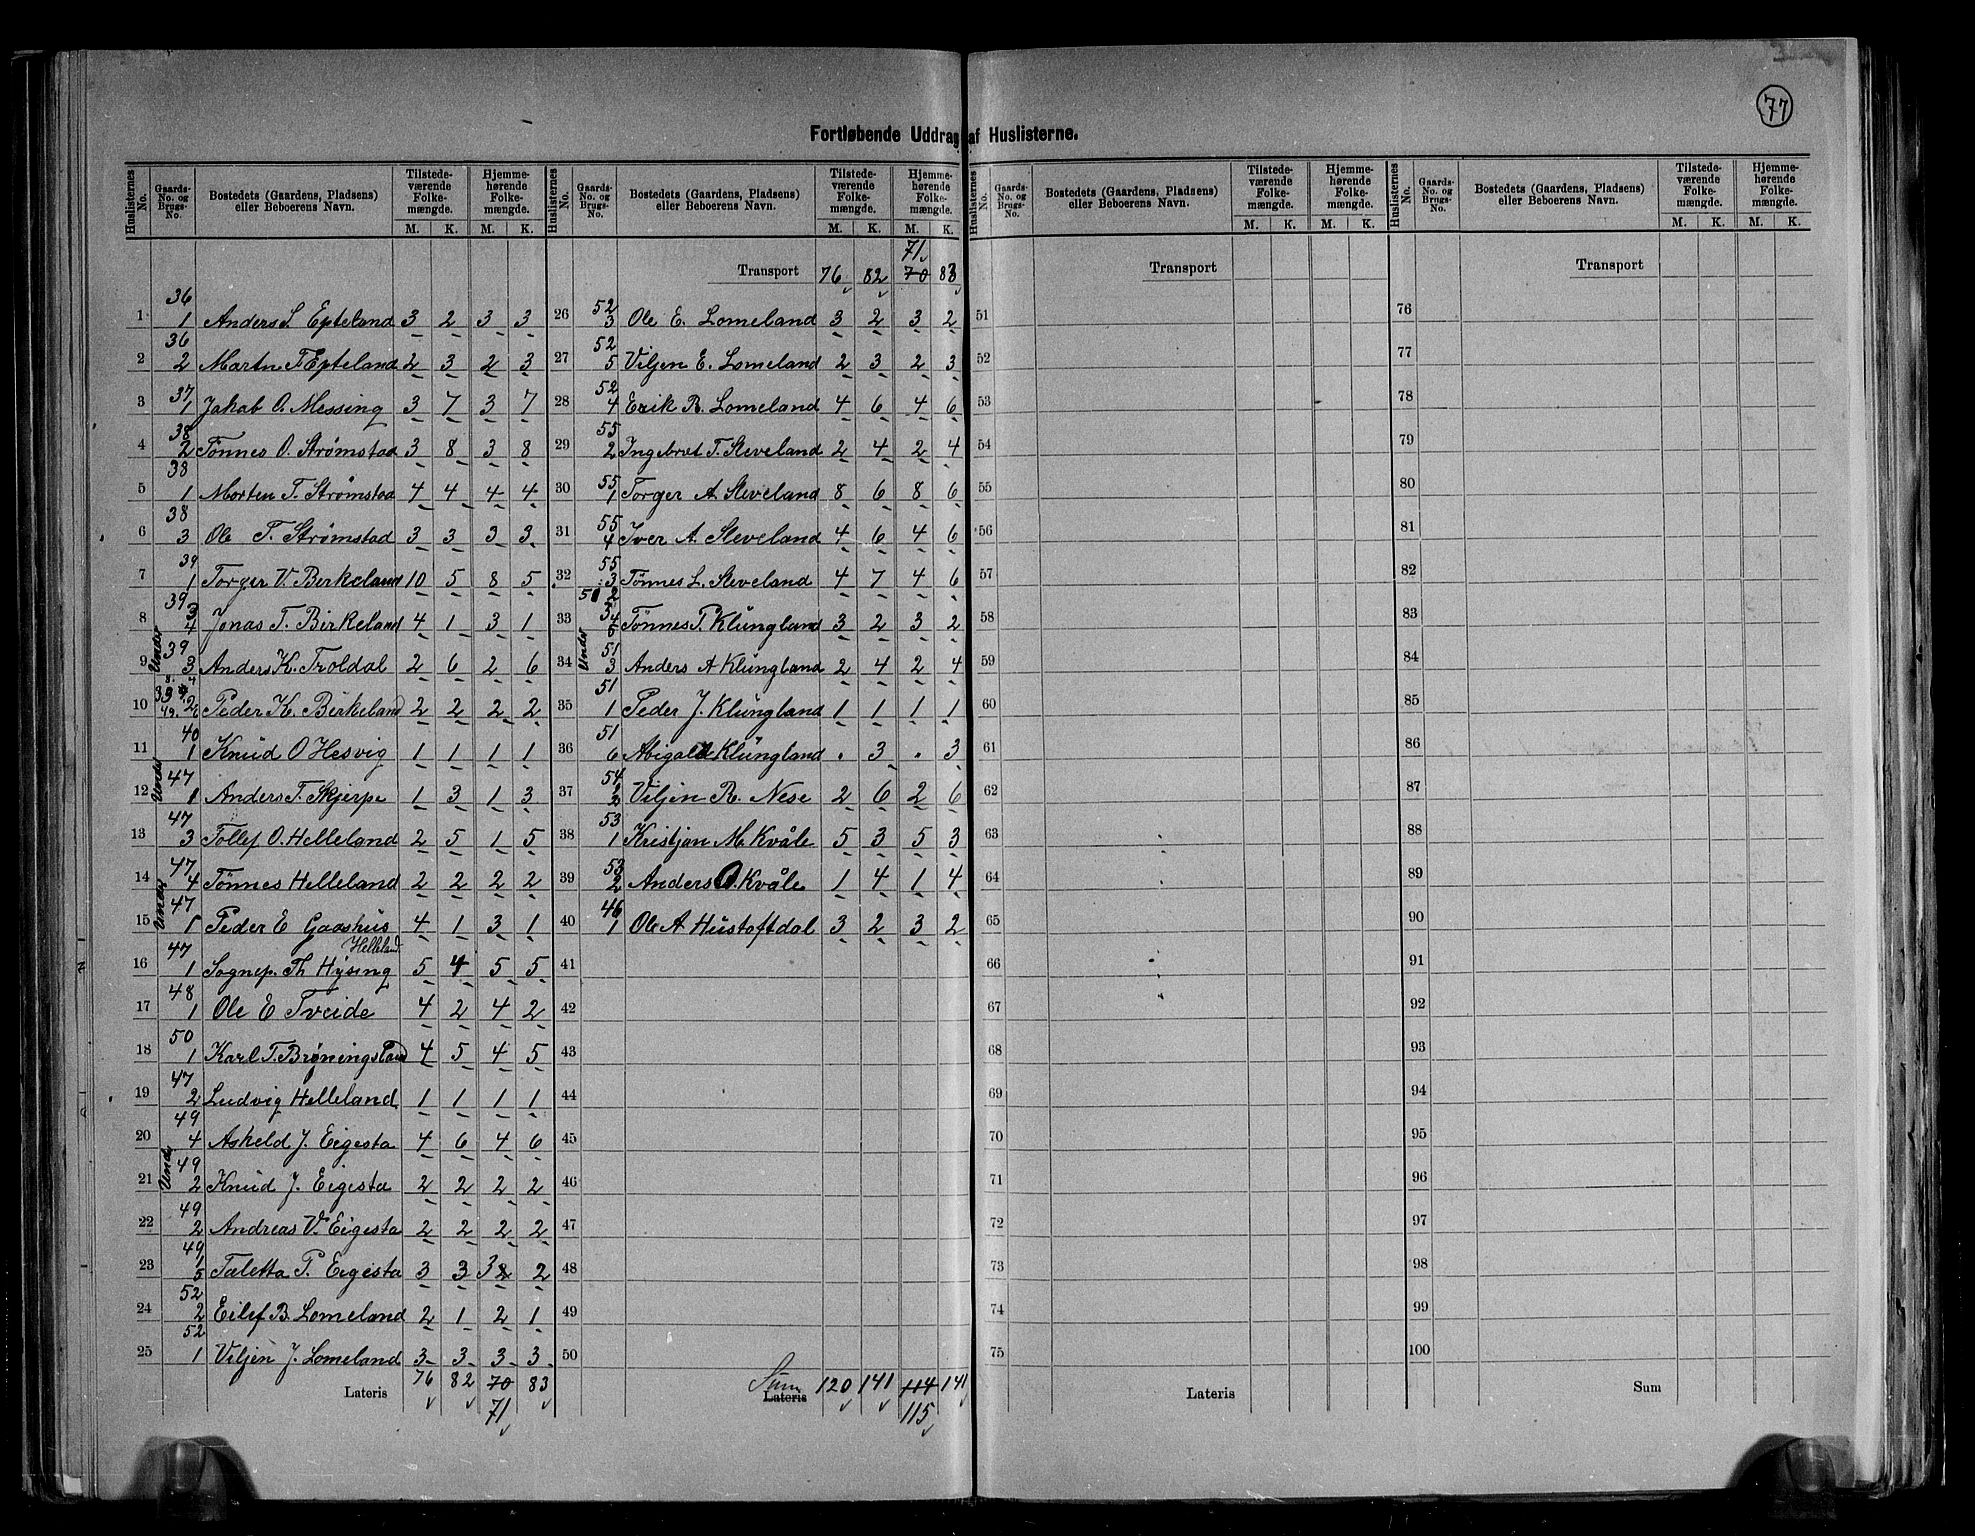 77
Fortløbende Uddrag af Huslisterne.
Huslisternes No. Gaards-No. og Brugs-No. Bostedets (Gaardens, Pladsens) eller Beboerens Navn. Tilstedeværende Folkemængde. M. K. Hjemmehørende Folkemængde. M. K.
1 36 1 Anders S Epteland 3 2 3 3
2 36 2 Martin T Epteland 2 3 2 3
3 37 1 Jakob O. Messing 3 7 3 7
4 38 2 Tönnes O. Strømstad 3 8 3 8
5 38 1 Morten T. Strømstad 4 4 4 4
6 38 3 Ole T. Strømstad 3 3 3 3
7 39 1 Torger V. Birkeland 10 5 8 5
8 39 3 4 Jonas T. Birkeland 4 1 3 1
9 Under 39 3 Anders K. Troldal 2 6 2 6
10 39 2 49. Peder K. Birkeland 2 2 2 2
11 40 1 Knud O Hesvig 1 1 1 1
12 Under 47 1 Anders T. Skjerpe 1 3 1 3
13 47 3 Tollef O. Helleland 2 5 1 5
14 47 4 Tönnes Helleland 2 2 2 2
15 Under 47 1 Peder E Gaashus 4 1 3 1
16 47 1 Sognep. Th Hysing Helleland 5 4 5 5
17 48 1 Ole E Tveide 4 2 4 2
18 50 1 Karl T. Brøningsland 4 5 4 5
19 47 2 Ludvig Helleland 1 1 1 1
20 49 4 Askeld J. Eigesta 4 6 4 6
21 Under 49 2 Knud J. Eigesta 2 2 2 2
22 49 2 Andreas V. Eigesta 2 2 2 2
23 49 1 5 Taletta P. Eigesta 3 3 3 2
24 52 2 Eilef B. Lomeland 2 1 2 1
25 52 1 Viljen J. Lomeland 3 3 3 3
Lateris 76 82 70 83
71
Huslisternes No. Gaards-No. og Brugs-No. Bostedets (Gaardens, Pladsens) eller Beboerens Navn. Tilstedeværende Folkemængde. M. K. Hjemmehørende Folkemængde. M. K.
71
Transport 76 82 70 83
26 52 3 Ole E. Lomeland 3 2 3 2
27 52 5 Viljen E. Lomeland 2 3 2 3
28 52 4 Erik R. Lomeland 4 6 4 6
29 55 2 Ingebret T. Sleveland 2 4 2 4
30 55 1 Torger A Sleveland 8 6 8 6
31 55 4 Iver A. Sleveland 4 6 4 6
32 55 3 Tønnes L. Sleveland 4 7 4 6
33 51 2 3 4 5 Tønnes P. Klungland 3 2 3 2
34 Under 51 3 Anders A Klungland 2 4 2 4
35 51 1 Peder J. Klungland 1 1 1 1
36 51 6 Abigael Klungland " 3 " 3
37 54 1 2 Viljen R. Nese 2 6 2 6
38 53 1 Kristjan M. Kvåle 5 3 5 3
39 53 2 Anders O. Kvåle 1 4 1 4
40 46 1 Ole A Hustoftdal 3 2 3 2
41
42
43
44
45
46
47
48
49
50
Sum Lateris 120 141 114 141
115
Huslisternes No. Gaards-No. og Brugs-No. Bostedets (Gaardens, Pladsens) eller Beboerens Navn. Tilstedeværende Folkemængde. M. K. Hjemmehørende Folkemængde. M. K.
Transport
51
52
53
54
55
56
57
58
59
60
61
62
63
64
65
66
67
68
69
70
71
72
73
74
75
Lateris
Huslisternes No. Gaards-No. og Brugs-No. Bostedets (Gaardens, Pladsens) eller Beboerens Navn. Tilstedeværende Folkemængde. M. K. Hjemmehørende Folkemængde. M. K.
Transport
76
77
78
79
80
81
82
83
84
85
86
87
88
89
90
91
92
93
94
95
96
97
98
99
100
Sum